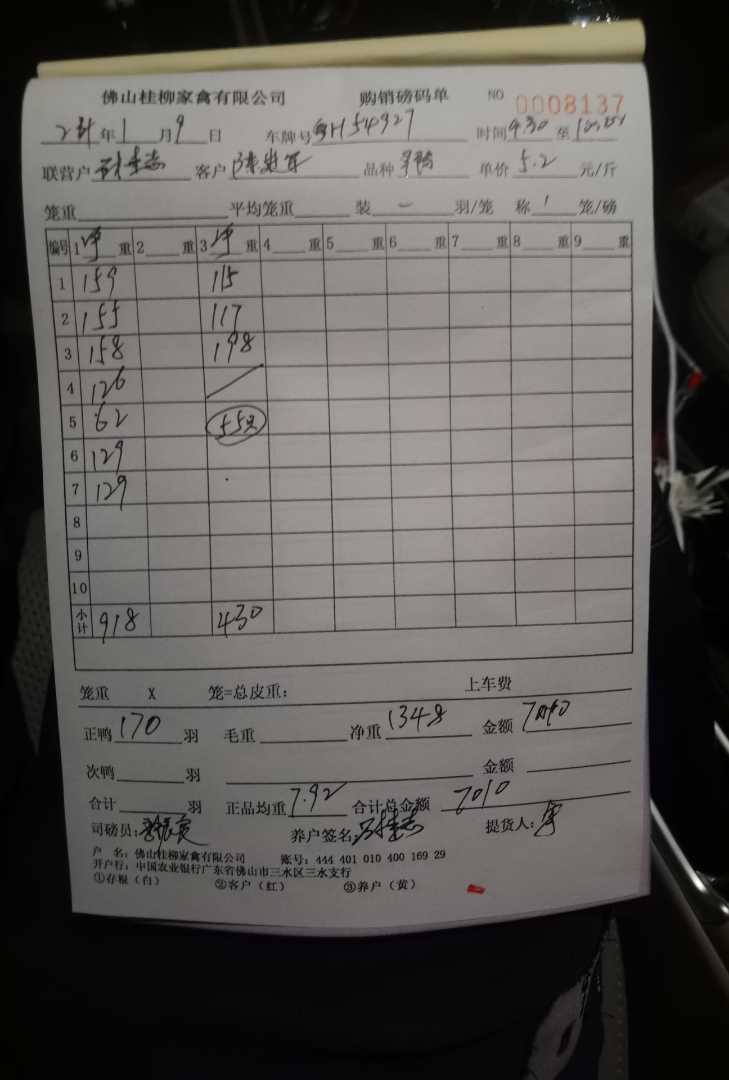 佛山桂柳家禽有限公司 购销磅码单 NO 0008137
年 1 月 9 日 车牌号 H54927 时间 4.30 至
联营户 客户 品种 单价 5.2 元/斤
笼重 平均笼重 装 一 羽/笼 称 1 笼/磅
编号 1 净 重 2 重 3 净 重 4 重 5 重 6 重 7 重 8 重 9 重
1 159 115
2 155 117
3 158 198
4 126
5 62 55只
6 129
7 129
8
9
10
小计 918 430
笼重 X 笼=总皮重: 上车费
正鸭 170 羽 毛重 净重 1348 金额
次鸭 羽 金额
合计 羽 正品均重 7.92 合计总金额 7010
司磅员: 养户签名: 提货人:
户 名: 佛山桂柳家禽有限公司 账号: 444 401 010 400 169 29
开户行: 中国农业银行广东省佛山市三水区三水支行
①存根（白） ②客户（红） ③养户（黄）